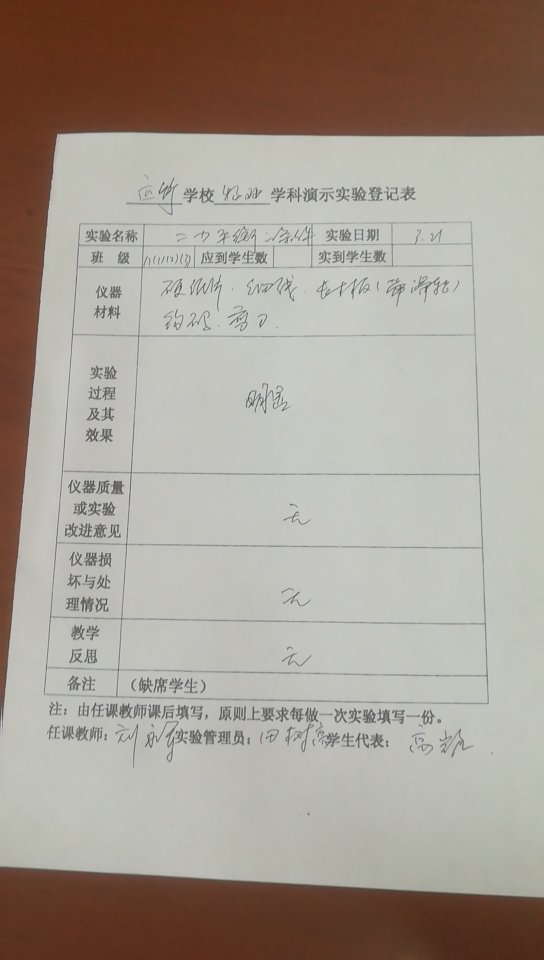 学校 物理 学科演示实验登记表
实验名称 二力平衡条件 实验日期 3.21
班 级 应到学生数 实到学生数
仪器材料 硬纸片、细线、长木板(带滑轮)
钩码、剪刀
实验
过程
及其
效果
明显
仪器质量
或实验
改进意见
无
仪器损
坏与处
理情况
无
教学
反思
无
备注 (缺席学生)
注:由任课教师课后填写,原则上要求每做一次实验填写一份。
任课教师:刘永军 实验管理员:田树高 学生代表:高